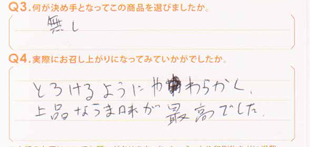 Q3.何が決め手となってこの商品を選びましたか。
無し
Q4.実際にお召し上がりになってみていかがでしたか。
とろけるようにやわらかく、
上品なうま味が最高でした